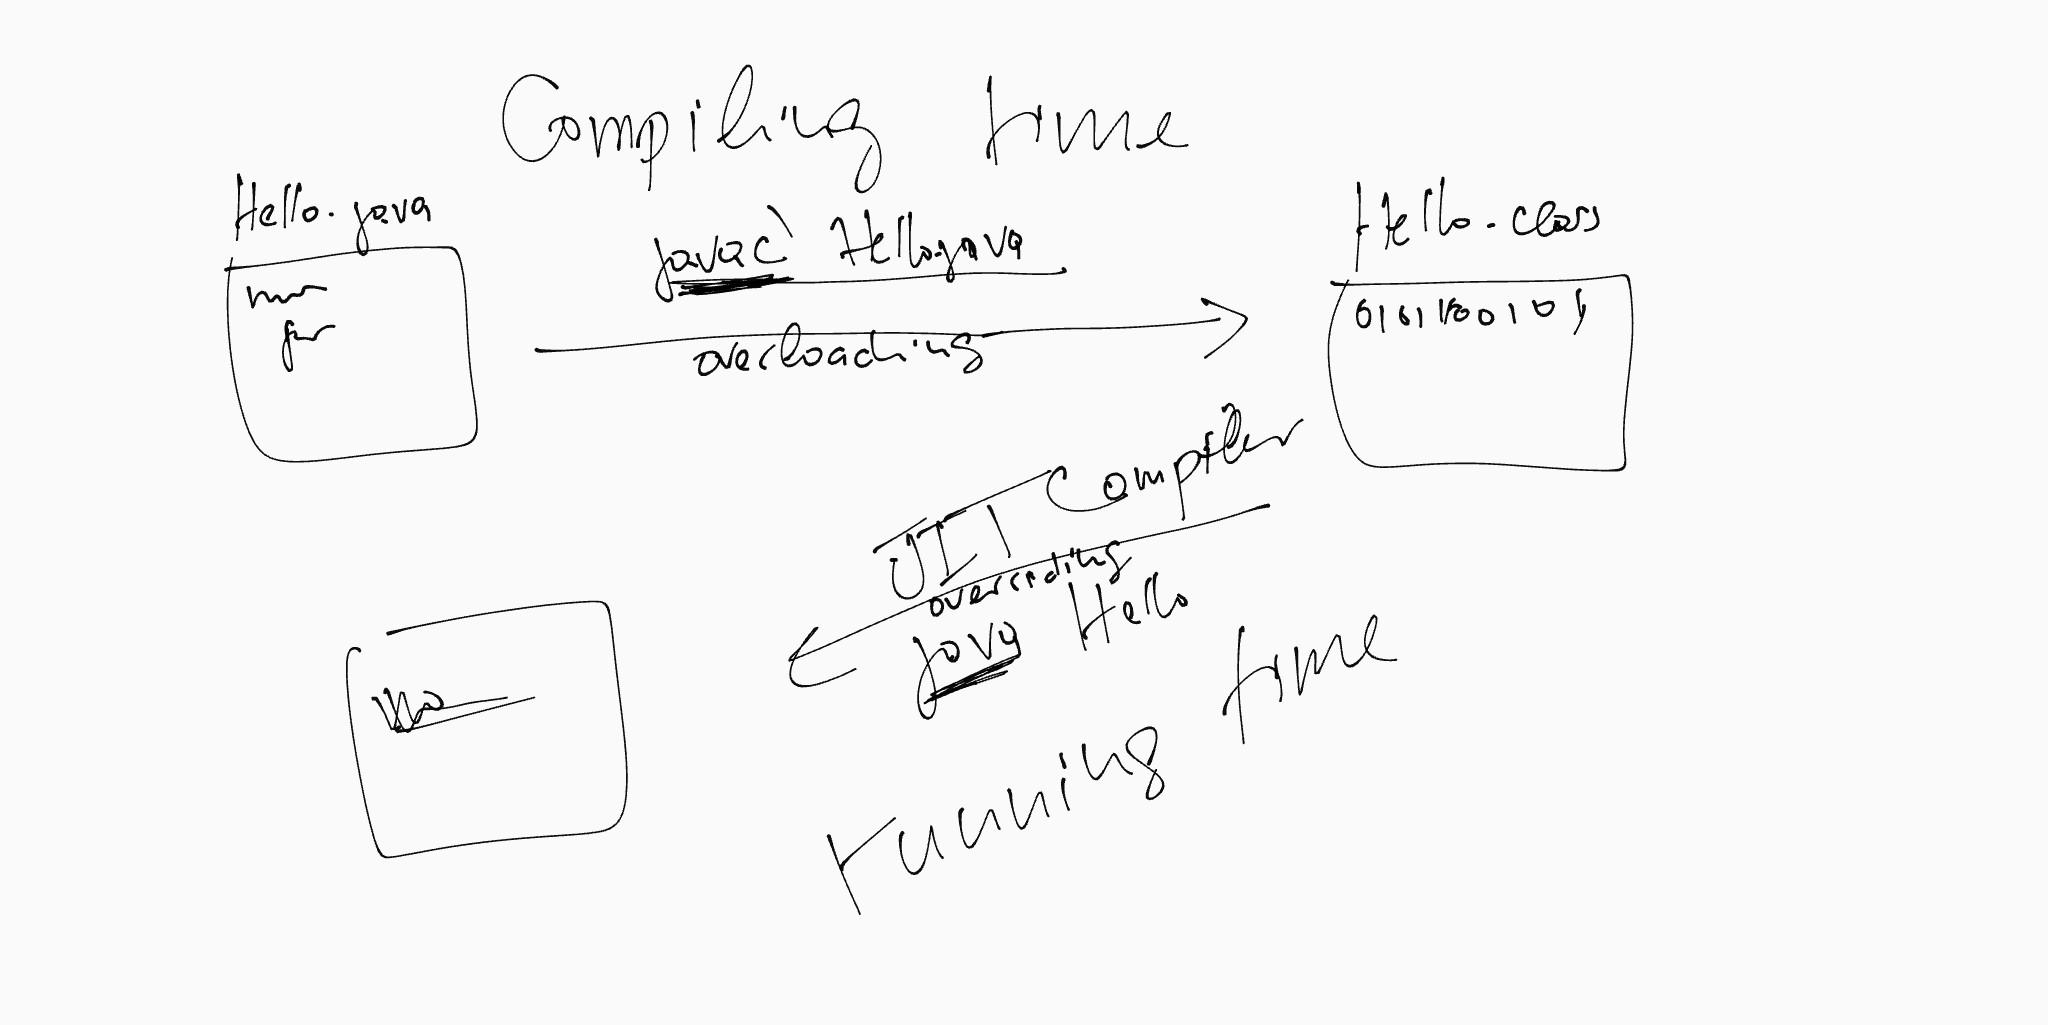 Compiling time
Hello.java
javac Hello.java
Hello.class
overloading
0101100101
JIT Compiler
overriding
java Hello
running time